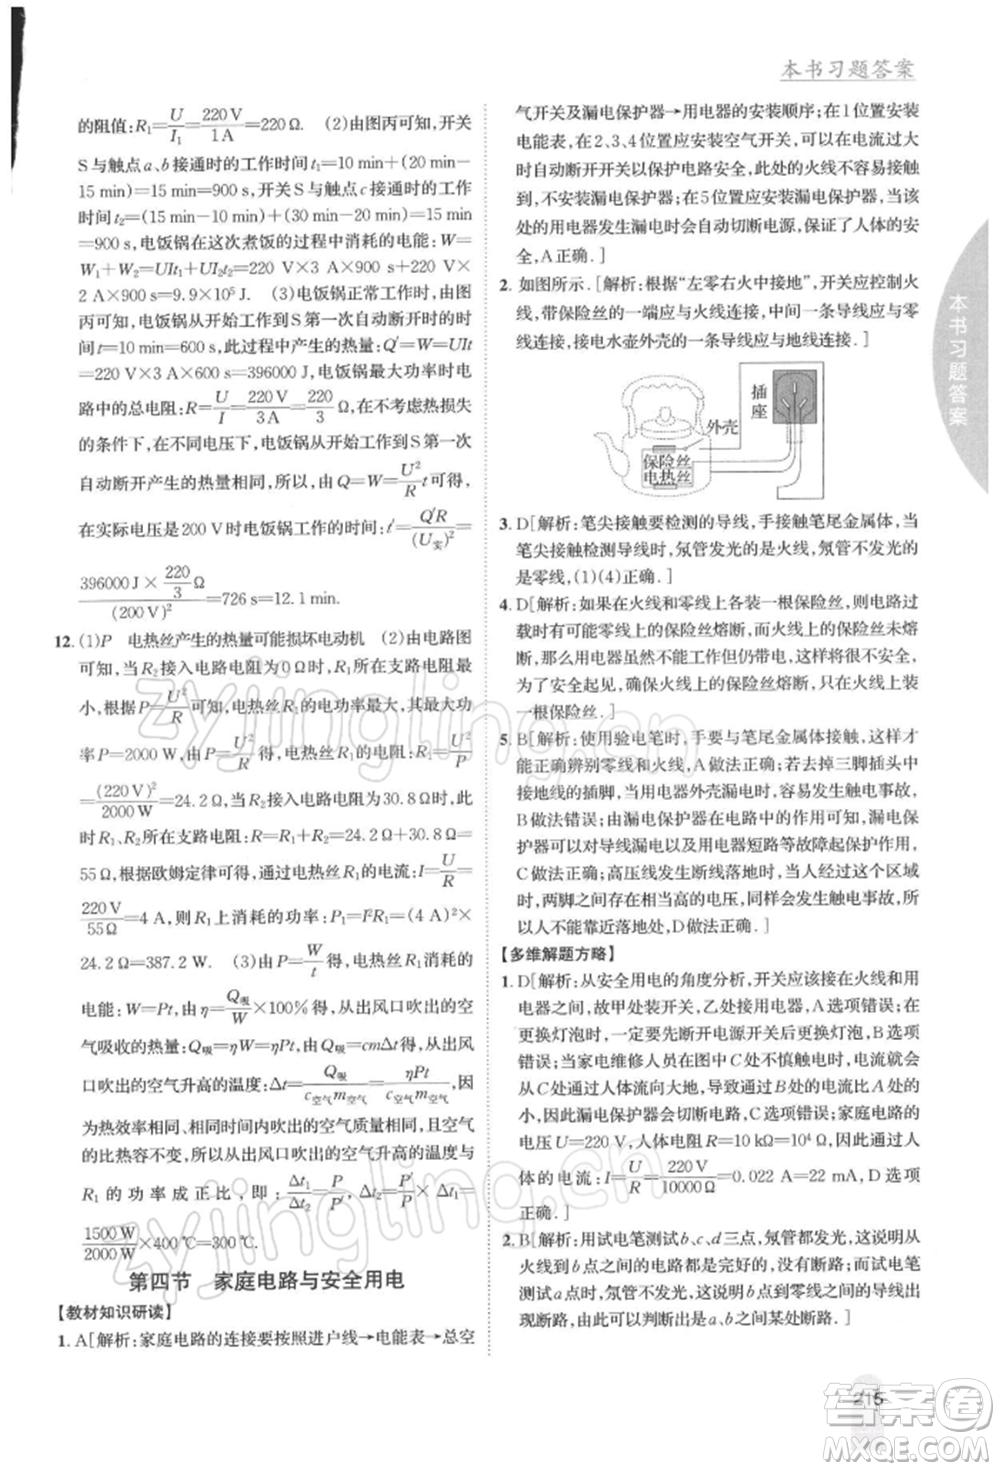 本书习题答案
的阻值:R₁=U/I₁=220 V/1 A=220 Ω. (2)由图丙可知,开关
S与触点a、b接通时的工作时间t₁=10 min+(20 min-
15 min)=15 min=900 s,开关S与触点c接通时的工作
时间t₂=(15 min-10 min)+(30 min-20 min)=15 min
=900 s,电饭锅在这次煮饭的过程中消耗的电能:W=
W₁+W₂=UI₁t₁+UI₂t₂=220 V×1 A×900 s+220 V×
2 A×900 s=9.9×10⁵ J. (3)电饭锅正常工作时,由图
丙可知,电饭锅从开始工作到S第一次自动断开时的时
间为10 min,此过程中产生的热量:Q′=W=UIt
=220 V×3 A×10×60 s=396000 J,电饭锅最大功率时电
路中的总电阻:R=U/I=220 V/3 A=220/3 Ω,在不考虑热损失
的条件下,在不同电压下,电饭锅从开始工作到S第一次
自动断开产生的热量相同,所以,由Q=W=U²/R t可得,
在实际电压是200 V时电饭锅工作的时间:t=Q′R/(U实)²=
396000 J×220/3 Ω/(200 V)²=726 s=12.1 min.
12.(1)P 电热丝产生的热量可能损坏电动机 (2)由电路图
可知,当R₂接入电路电阻为0 Ω时,R₁所在支路电阻最
小,根据P=U²/R可知,电热丝R₁的电功率最大,其最大功
率P=2000 W,由P=U²/R得,电热丝R₁的电阻:R₁=U²/P
=(220 V)²/2000 W=24.2 Ω;当R₂接入电路电阻为30.8 Ω时,此
时R₁所在支路电阻:R=R₁+R₂=24.2 Ω+30.8 Ω=
55 Ω,根据欧姆定律可得,通过电热丝的电流:I=U/R=
220 V/55 Ω=4 A,可得R₁消耗的功率:P₁=I²R₁=(4 A)²×
24.2 Ω=387.2 W. (3)由P=W/t可得,电热丝消耗的
电能:W=Pt,由η=Q吸/W×100%可得,从出风口吹出的空
气吸收的热量:Q吸=ηW=ηPt,由Q吸=cmΔt可得,从出风
口吹出的空气升高的温度:Δt=Q吸/c空气m空气=ηPt/c空气m空气,因
为热吹风时相同时间内吹出的空气质量和空气吸热
效率不变,所以,从出风口吹出的空气升高的温度与
R₁的功率成正比,即:Δt₁/Δt₂=P/P′,Δt₂=P′/P Δt₁=
1500 W/2000 W×400 ℃=300 ℃.
第四节 家庭电路与安全用电
【教材知识研读】
1. A[解析:家庭电路的连接要按照进户线→电能表→总空
气开关及漏电保护器→用电器的安装顺序;在1位置安装
电能表,在2、3、4位置应安装空气开关,可在电流过大
时自动断开开关以保护电路安全,此处的火线不会接触
到,不安装漏电保护器;在5位置应安装漏电保护器,当该
处的用电器发生漏电时会自动切断电源,保护了人体的安
全,A正确.]
2. 如图所示.[解析:根据“左零右火中接地”,开关应控制火
线,带保险丝的一端应与火线连接,中间一条导线应与零
线连接,接电水壶外壳的一条导线应与地线连接.]
插座
外壳
保险丝
电热丝
3. D[解析:笔尖接触要检测的导线,手接触笔尾金属体,当
笔尖接触检测导线时,氖管发光的是火线,氖管不发光的
是零线,(1)(4)正确.]
4. D[解析:如果在火线和零线上各装一根保险丝,则电路过
载时有可能零线上的保险丝熔断,而火线的保险丝未熔
断,那么用电器虽然不能工作但仍带电,容易发生事故,
为了安全起见,确保火线上的保险丝熔断,只在火线上装
一根保险丝.]
5 B[解析:使用验电笔时,手要与笔尾金属体接触,这样才
能正确辨别零线和火线,A做法正确;若去掉三脚插头中
接地线的插脚,当用电器外壳漏电时,会造成触电事故,
B做法错误;由漏电保护器在电路中的作用可知,漏电保
护器可以对导线漏电以及用电器短路等故障起保护作用,
C做法正确;高压线断线落地时,当人经过这个区域
时,两脚之间有可能存在电压,会造成人体触电事故,所
以人不能靠近落地电线,D做法正确.]
【多维解题方略】
1. D[解析:从安全用电的角度分析,开关应该接在火线和用
电器之间,故甲处装开关,乙处接用电器,A选项错误;在
更换灯泡时,一定要先断开电源开关后更换灯泡,B选项
错误;当家电维修人员在图中C处不慎触电时,会有电流
从C处经过人体流向大地,从而使A处的电流比B处的
小,因此漏电保护器会切断电路,C选项错误;家庭电路的
电压U=220 V,人体电阻R=10 kΩ=10⁴ Ω,则通过人
体的电流:I=U/R=220 V/10000 Ω=0.022 A=22 mA,D选项
正确.]
2. B[解析:用试电笔测试b、c、d三点,氖管都发光,说明
火线到d点没有断路;只有测试a点时氖管不发光,说明
从火线到a点是断开的,即b点到零线之间的某处不可能
出现断路,只能是ab之间某处断路.]
本书习题答案
215
zyjingling.cn
zyjingling.cn
答案圈
MXQE.COM